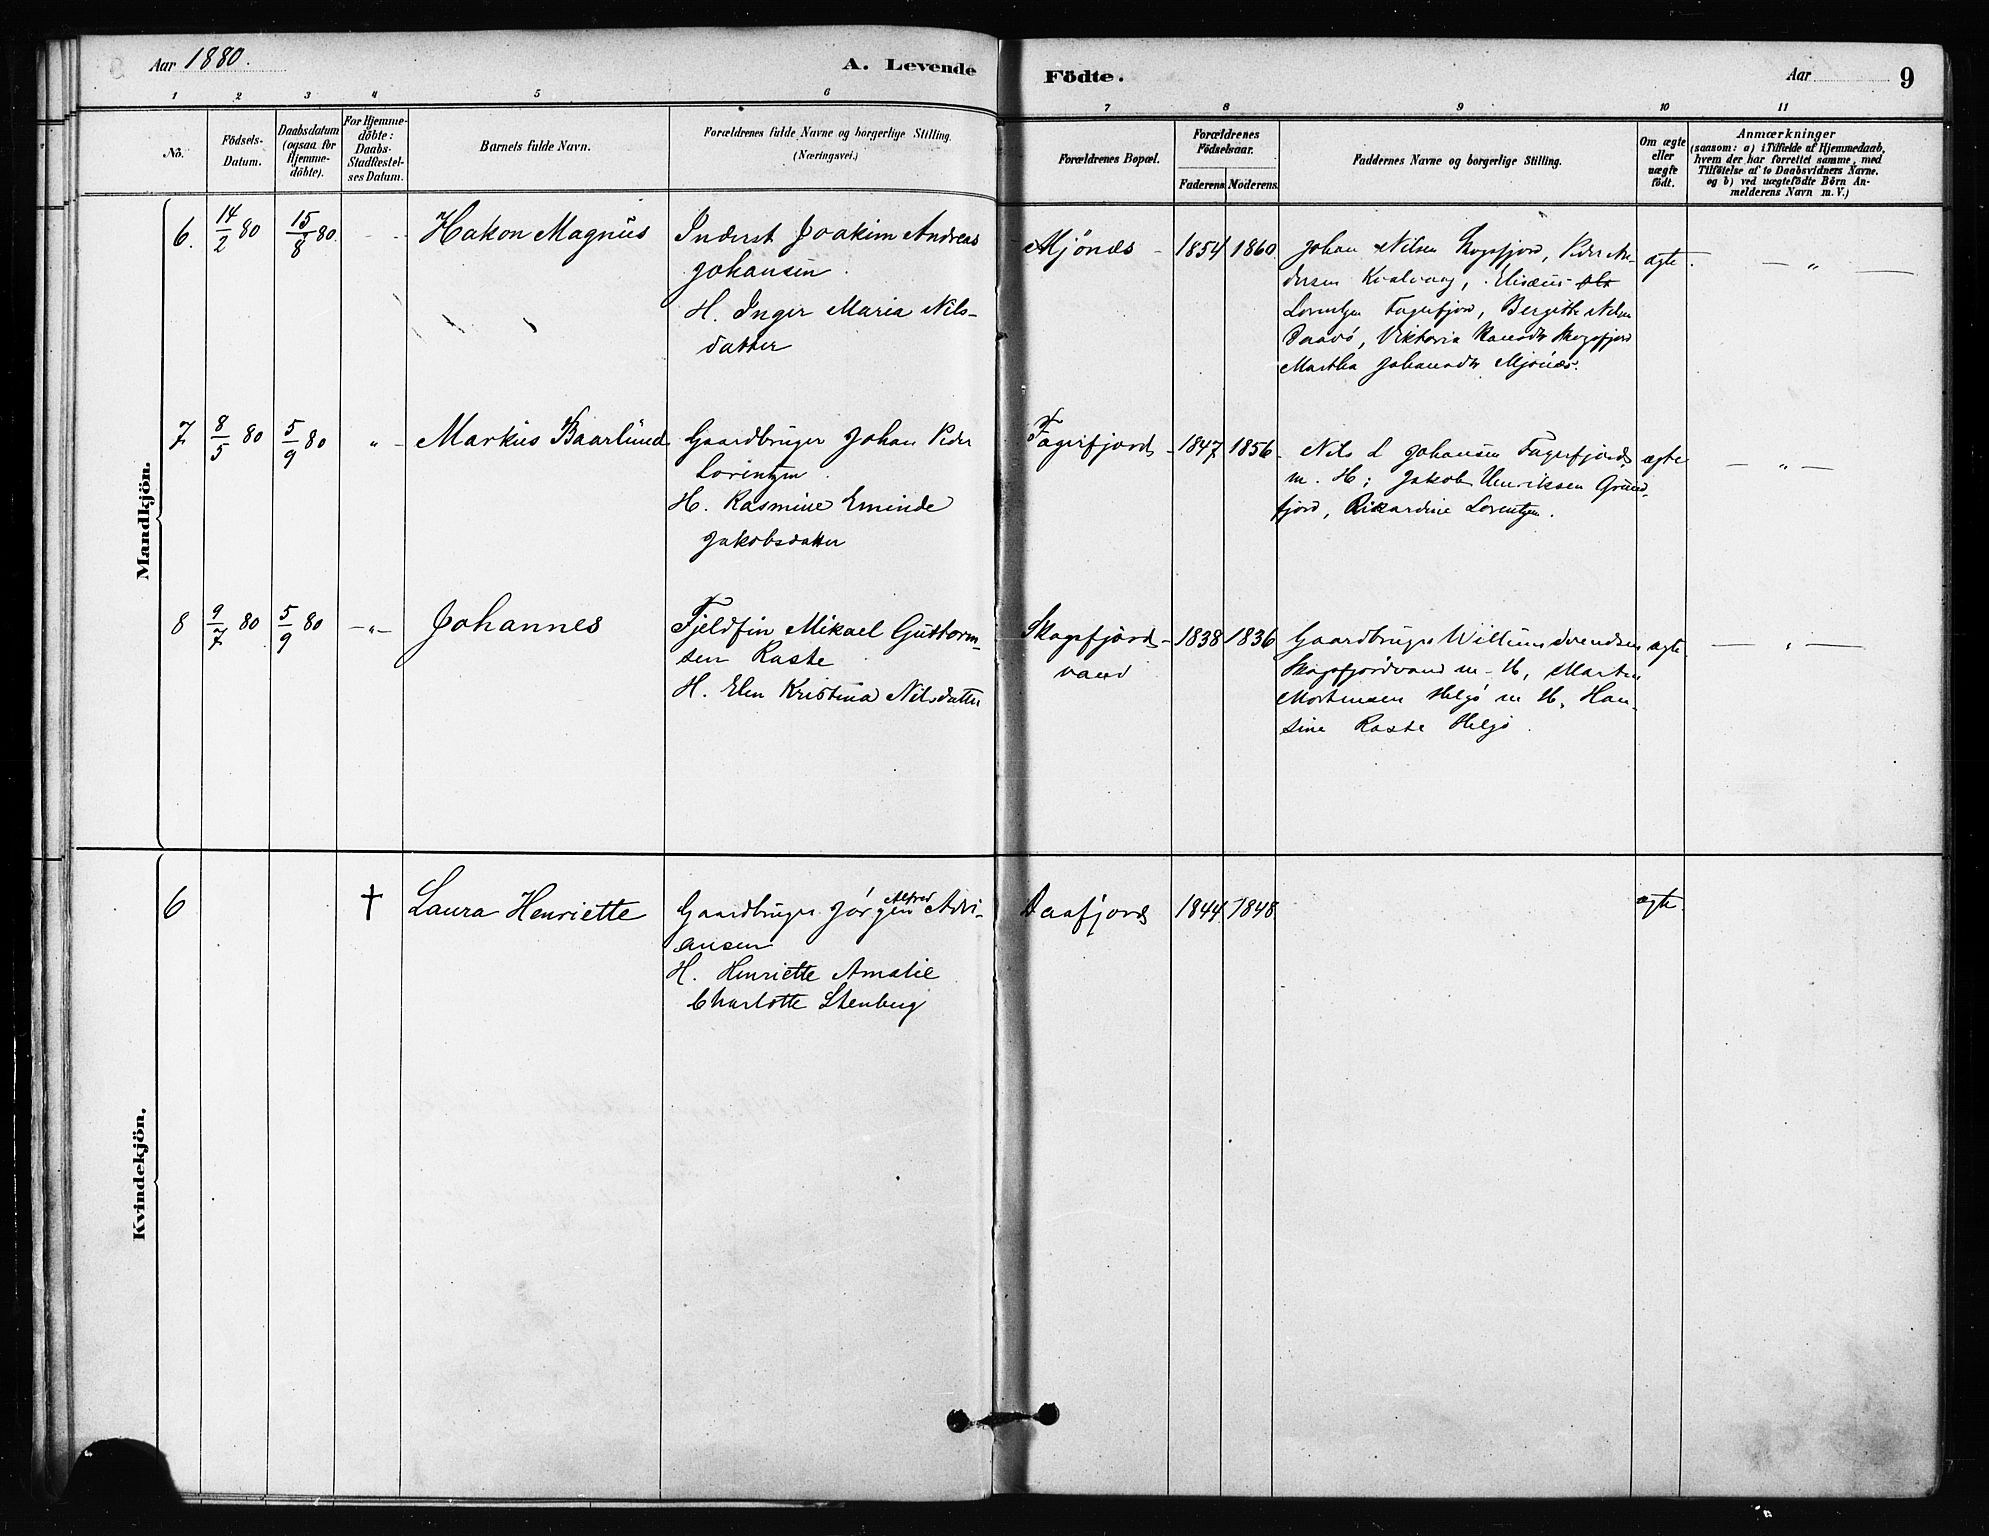 Aar 1880.
A. Levende
Födte.
Aar
9
1 2 3 4 5 6 7 8 9 10 11
No.
Födsels-
Datum.
Daabsdatum
(ogsaa for
Hjemme-
döbte).
For Hjemme-
döbte:
Daabs-
Stadfestel-
ses Datum.
Barnets fulde Navn.
Forældrenes fulde Navne og borgerlige Stilling.
(Næringsvei.)
Forældrenes Bopæl.
Forældrenes
Födselsaar.
Faderens Moderens
Faddernes Navne og borgerlige Stilling.
Om ægte
eller
uægte
födt.
Anmærkninger
(saasom: a) i Tilfælde af Hjemmedaab,
hvem der har forrettet samme, med
Tilföielse af to Daabsvidners Navne.
og b) ved uægtefödte Börn An-
melderens Navn m. V.)
Mandkjön.
6. 14/2 80 15/8 80. - - Hakon Magnus
Inderst Joakim Andreas
Johansen.
H. Inger Maria Nils-
datter
Mjönæs - 1854 1860
Johan Nilsen Skogsfjord, Peder An-
dersen Kvalvaag, Elisæus
Lorentzen Fagerfjord, Bergitte Nilsen
Viktoria Hansdtr Skogsfjord
Martha Johansdtr Mjönæs.
ægte. — " —
7 8/5 80 5/9 80 " - Markus Baarlund
Gaardbruger Johan Peder
Lorentzen.
H. Rasmine Eminde
Jakobsdatter
Fagerfjord - 1847 1856
- Nils L Johansen Fagerfjord
m. H; Jakob Henriksen Grund-
fjord, Rikardine Lorentzen.
ægte — " —
8 9/7 80 5/9 80 — " — Johannes
Fjeldfin Mikael Guttorm-
sen Raste
H. Elen Kristina Nilsdatter
Skogsfjord-
vand
1838 1836
Gaardbruger Willum Svendsen
Skogsfjordvand m. H, Morten
Mortensen Helgö m H, Han-
sine Raste Helgö.
ægte. — " —
Kvindekjön.
6 † Laura Henriette
Gaardbruger Jörgen Alfred Adri-
ansen
H. Henriette Amalie
Charlotte Stenberg
Daafjord 1844 1848
ægte.